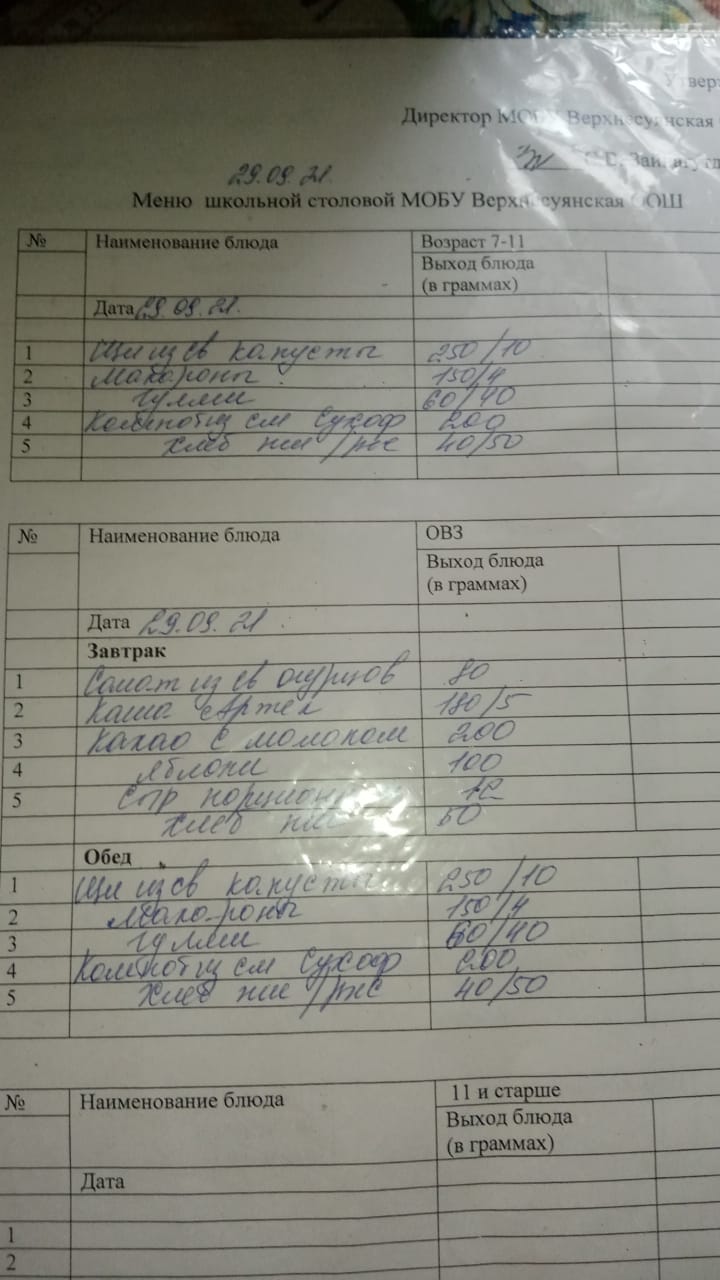 Утвер
Директор МОБУ Верхнесуянская
29.09.21.
Меню школьной столовой МОБУ Верхнесуянская ООШ
№ Наименование блюда Возраст 7-11
Выход блюда
(в граммах)
Дата 29.09.21.
1 Щи из св капусты 250/10
2 Макароны 150/4
3 гуляш 60/40
4 Компот из см сухоф 200
5 Хлеб пш/рж 40/50
№ Наименование блюда ОВЗ
Выход блюда
(в граммах)
Дата 29.09.21.
Завтрак
1 Салат из св огурцов 80
2 Каша Артек 180/5
3 Какао с молоком 200
4 яблоки 100
5 Сыр
Хлеб пш 50
Обед
1 Щи из св капусты 250/10
2 Макароны 150/4
3 гуляш 60/40
4 Компот из см сухоф 200
5 Хлеб пш/рж 40/50
№ Наименование блюда 11 и старше
Выход блюда
(в граммах)
Дата
1
2